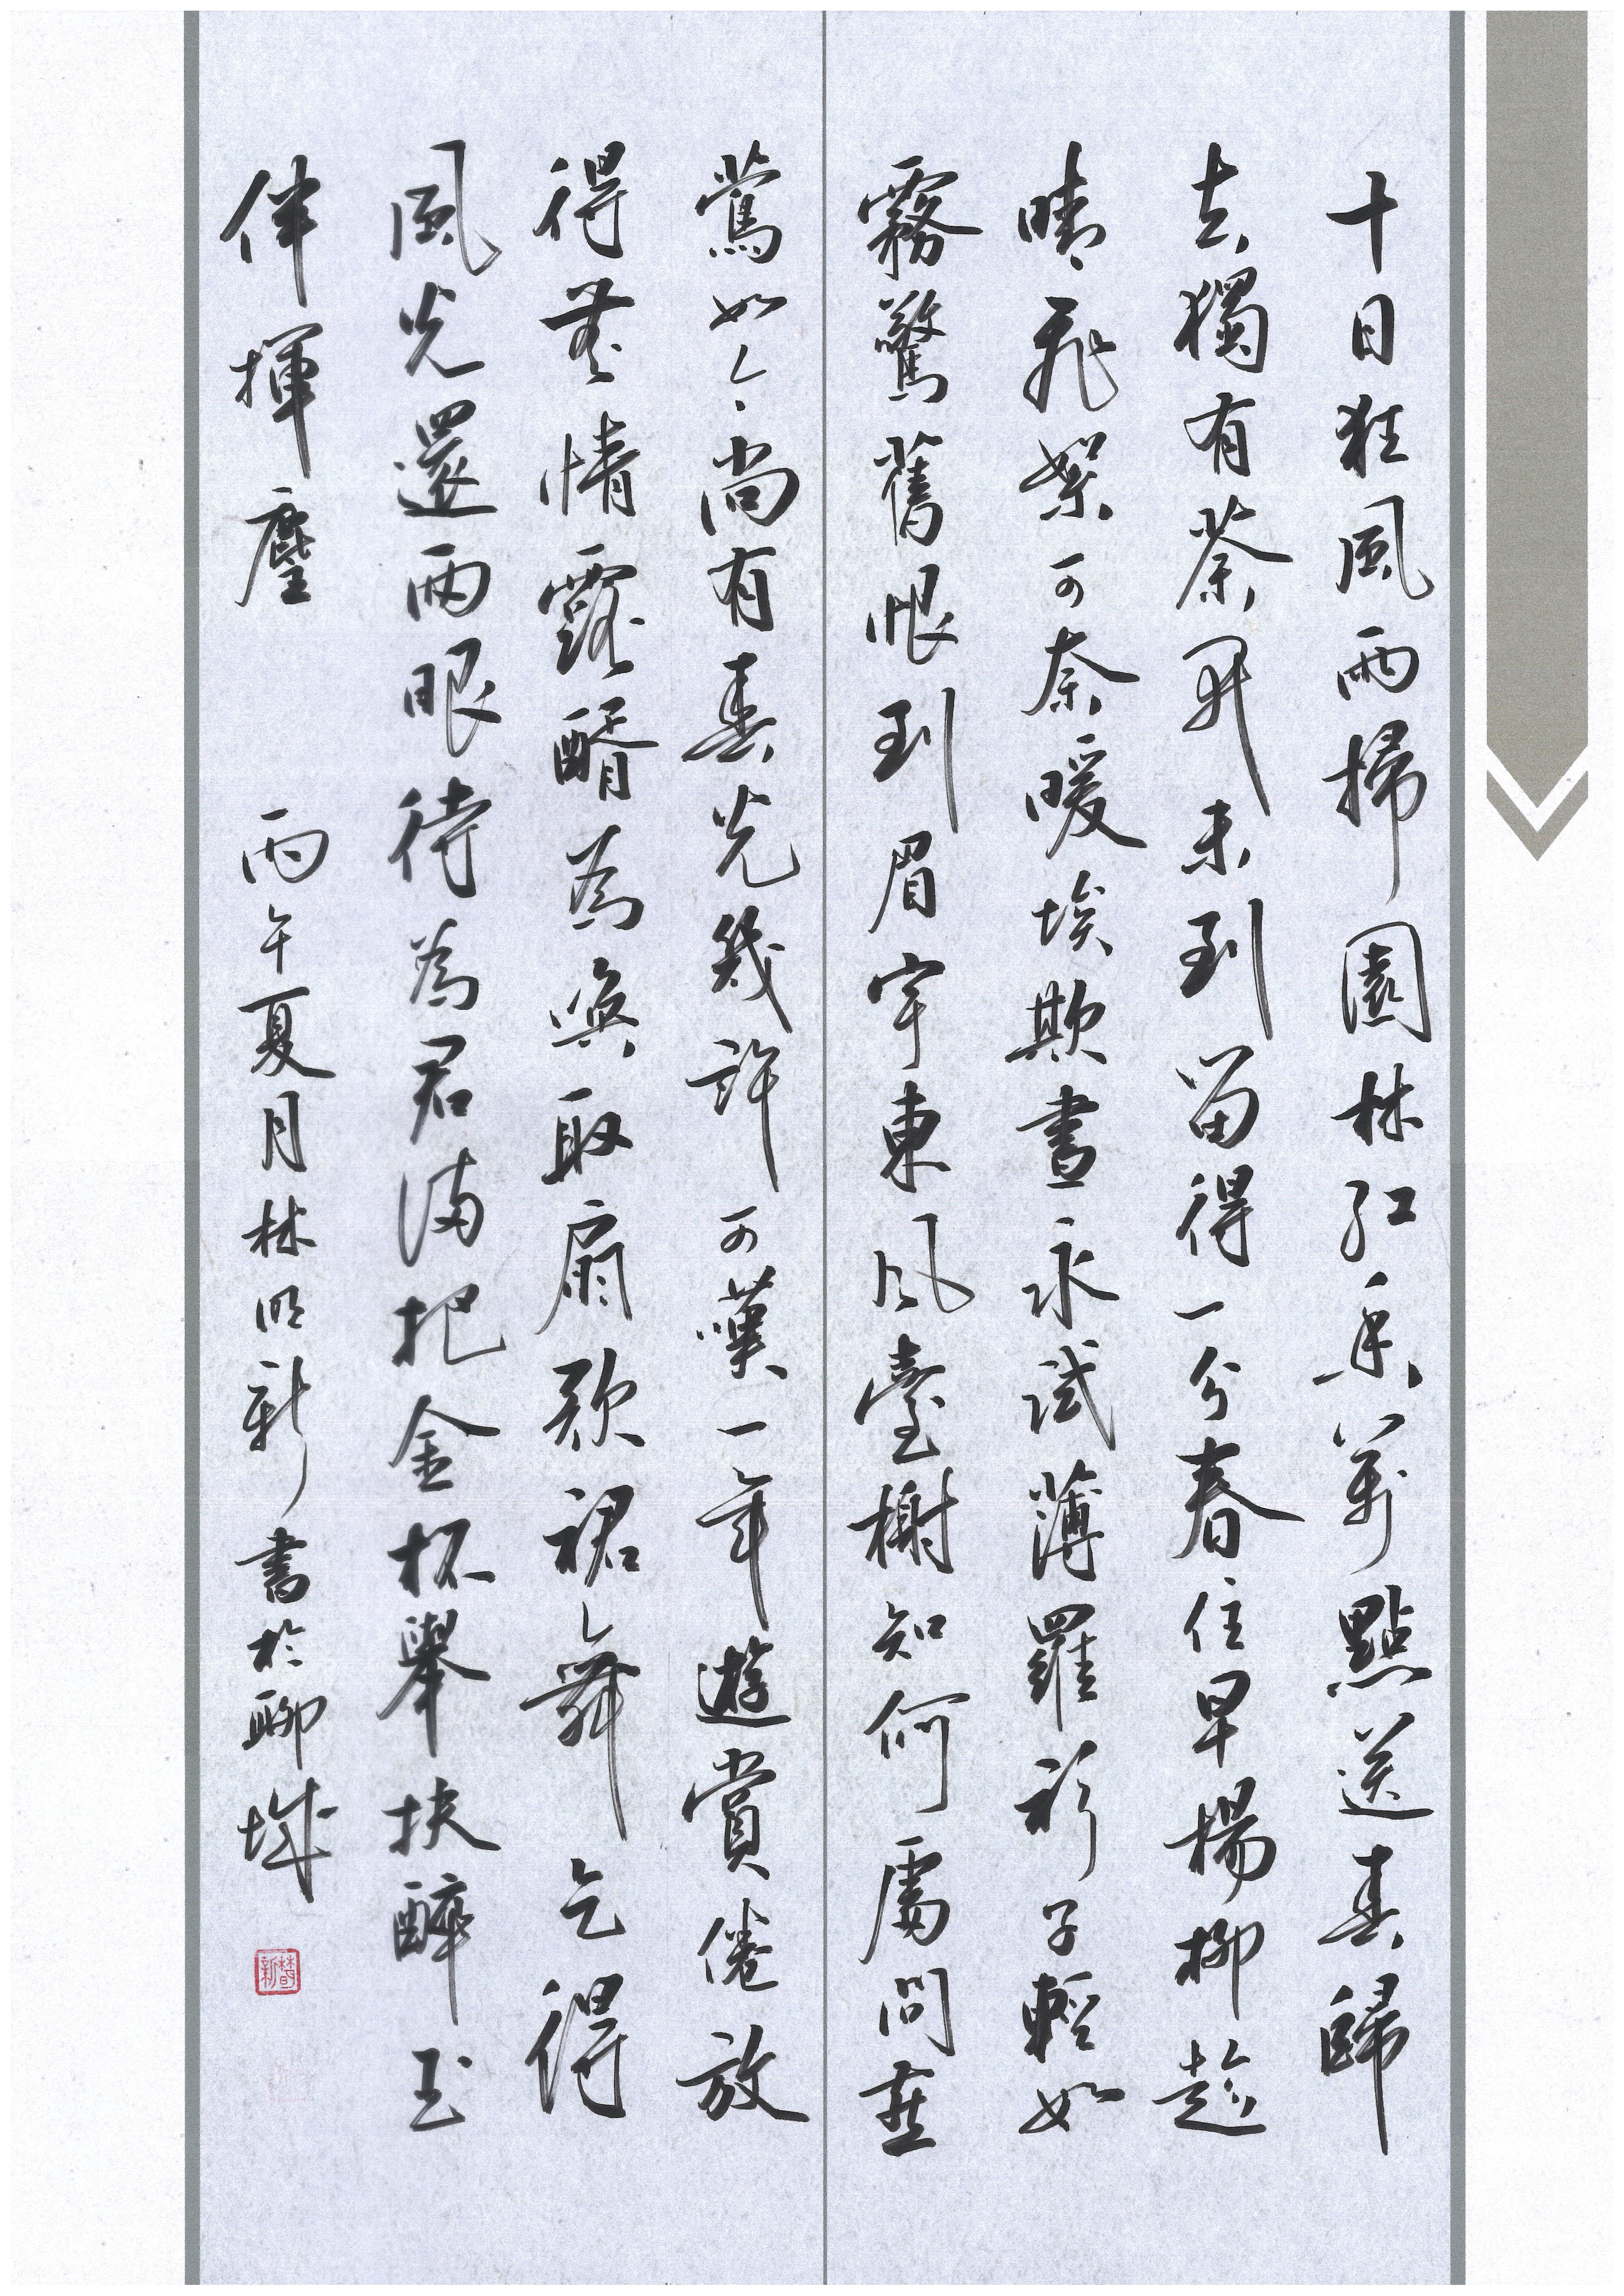 十日狂風雨掃園林紅香萬點送春歸
去獨有荼開未到留得一分春住早楊柳趁
晴飛絮可奈暖埃欺晝永試薄羅衫子輕如
霧驚舊恨到眉宇東風臺榭知何處問燕
鶯如今尚有春光幾許可嘆一年遊賞倦放
得無情露醑為喚取扇歌裙舞乞得
風光還兩眼待為君滿把金杯舉扶醉玉
伴揮麈 丙午夏月林明新書於聊城
林明新